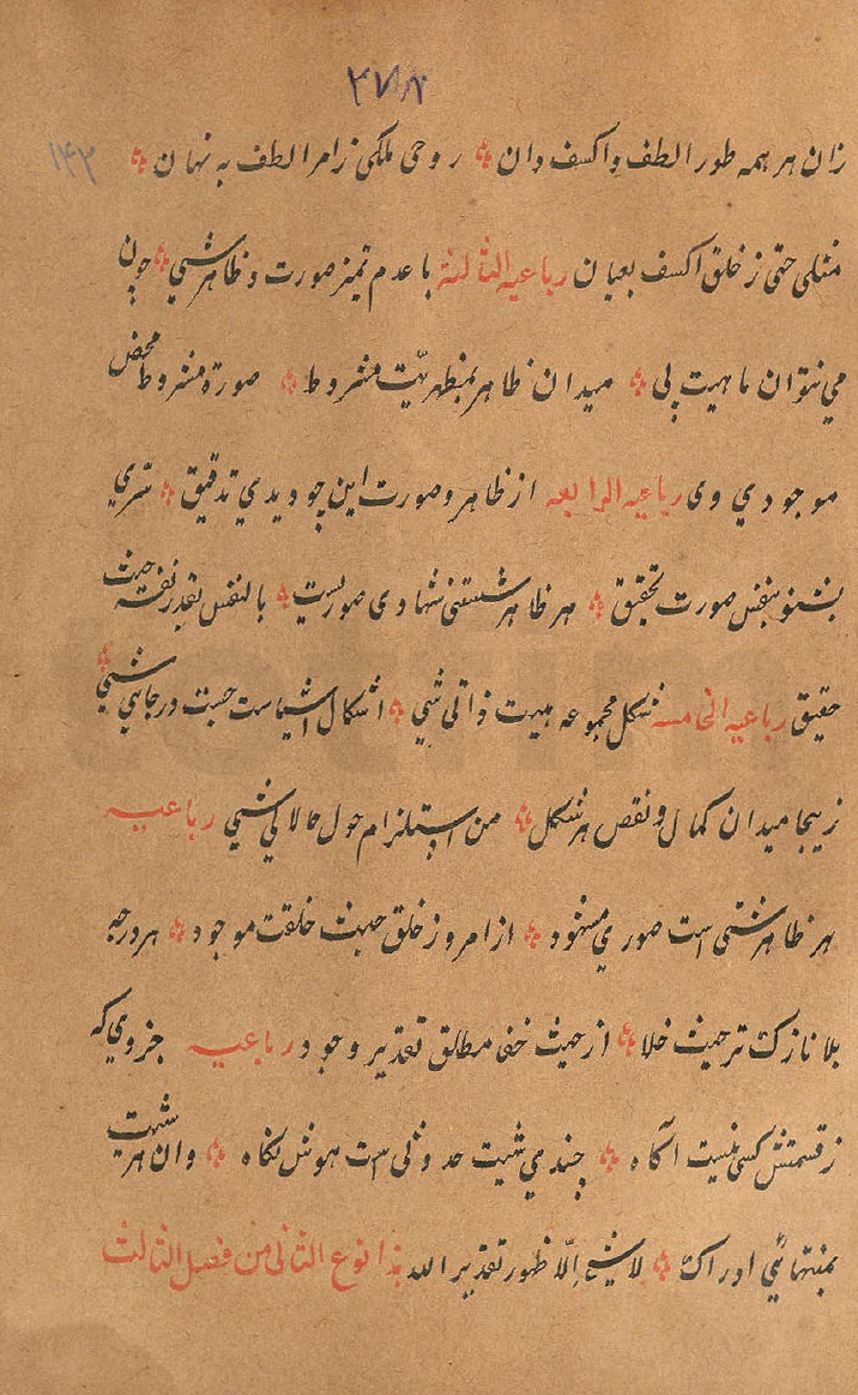 ۲۷۸
۱۴۲
زان هر همه طور الطف و اکسف دان ؞ روحی ملکی ز امر الطف به نهان ؞
مثلی حتی ز خلق اکسف بعیان رباعیه الثالثة با عدم تمیز صورت و ظاهر شیی ؞ چون
می نتوان ماهیت پی ؞ میدان ظاهر بمظهریّت مشروط ؞ صورة مشروط محض
موجودی وی رباعیه الرابعه از ظاهر و صورت این چو دیدی تدقیق ؞ سّری
بشنو بنفس صورت تحقیق ؞ هر ظاهر شیتی نشاوی صوریست ؞ بالنفس بقدر نفسه حیث
حقیق رباعیه الخامسه شکل مجموعه هییت ذاتی شیی ؞ اشکال اشیاست حسبت در جایی شیی ؞
زینجا میدان کمال و نقص هر شکل ؞ من استلزام حول حالاتی شیی رباعیه
هر ظاهر شیتی است صوری مشهود ؞ از امر و ز خلق حیث خلقت موجود ؞ هر درجه
بلا نازک تر حیث خلا ؞ از حیث خفی مطلق تقدیر وجود رباعیه جزوی که
ز قسمتش کسی نیست آگاه ؞ چندی شیت حد وئی ست هوش نگاه ؞ وان هر شیت
بمنتهائی ادراک ؞ لا شیئ الّا ظهور تقدیر الله هذا نوع الثانی من فصل الثالث